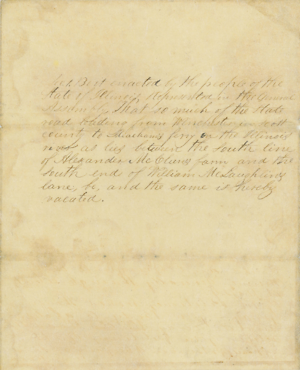 Be it enacted by the people of the
State of Illinois, represented in the General
Assembly, That so much of the State
road, leading from Winchester, in Scott
county to ferry on the Illinois
as lies between the south line
of Alexander McClure's farm and the
south end of William McLaughlin's
lane, be, and the same is hereby
vacated.